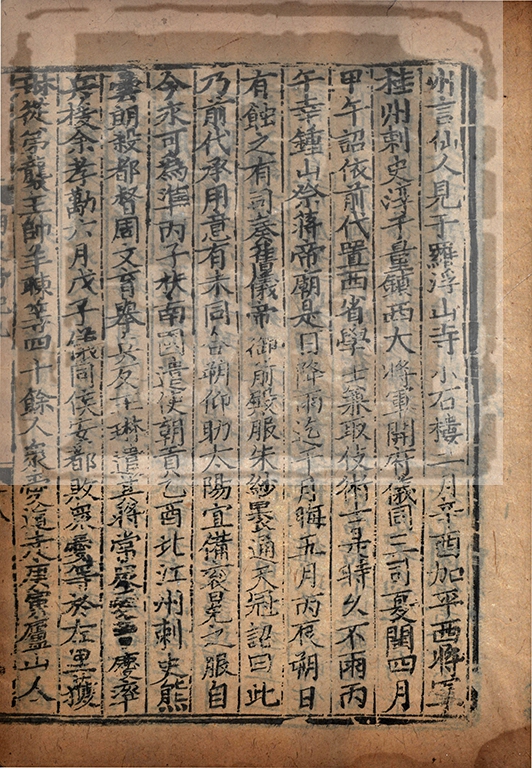 州言仙人見于羅浮山寺小石樓二月辛酉加平西將軍
桂州刺史淳于量鎮西大將軍開府儀同三司夏閏四月
甲午詔依前代置西省學士兼取伎術士是時久不雨丙
午幸鍾山祭蔣帝廟是日降雨迄于月晦五月丙辰朔日
有蝕之有司奏舊儀帝御前殿服朱紗袍通天冠詔曰此
乃前代承用意有未同合朝仰助太陽宜備袞冕之服自
今永可為準丙子扶南國遣使朝貢乙酉北江州刺史熊
曇朗殺都督周文育舉兵反王琳遣其將常衆愛曹慶率
兵援余孝勱六月戊子儀同侯安都敗衆愛等於左里獲
琳從弟襲主帥羊暕等四十餘人衆愛遁走庚寅廬山人